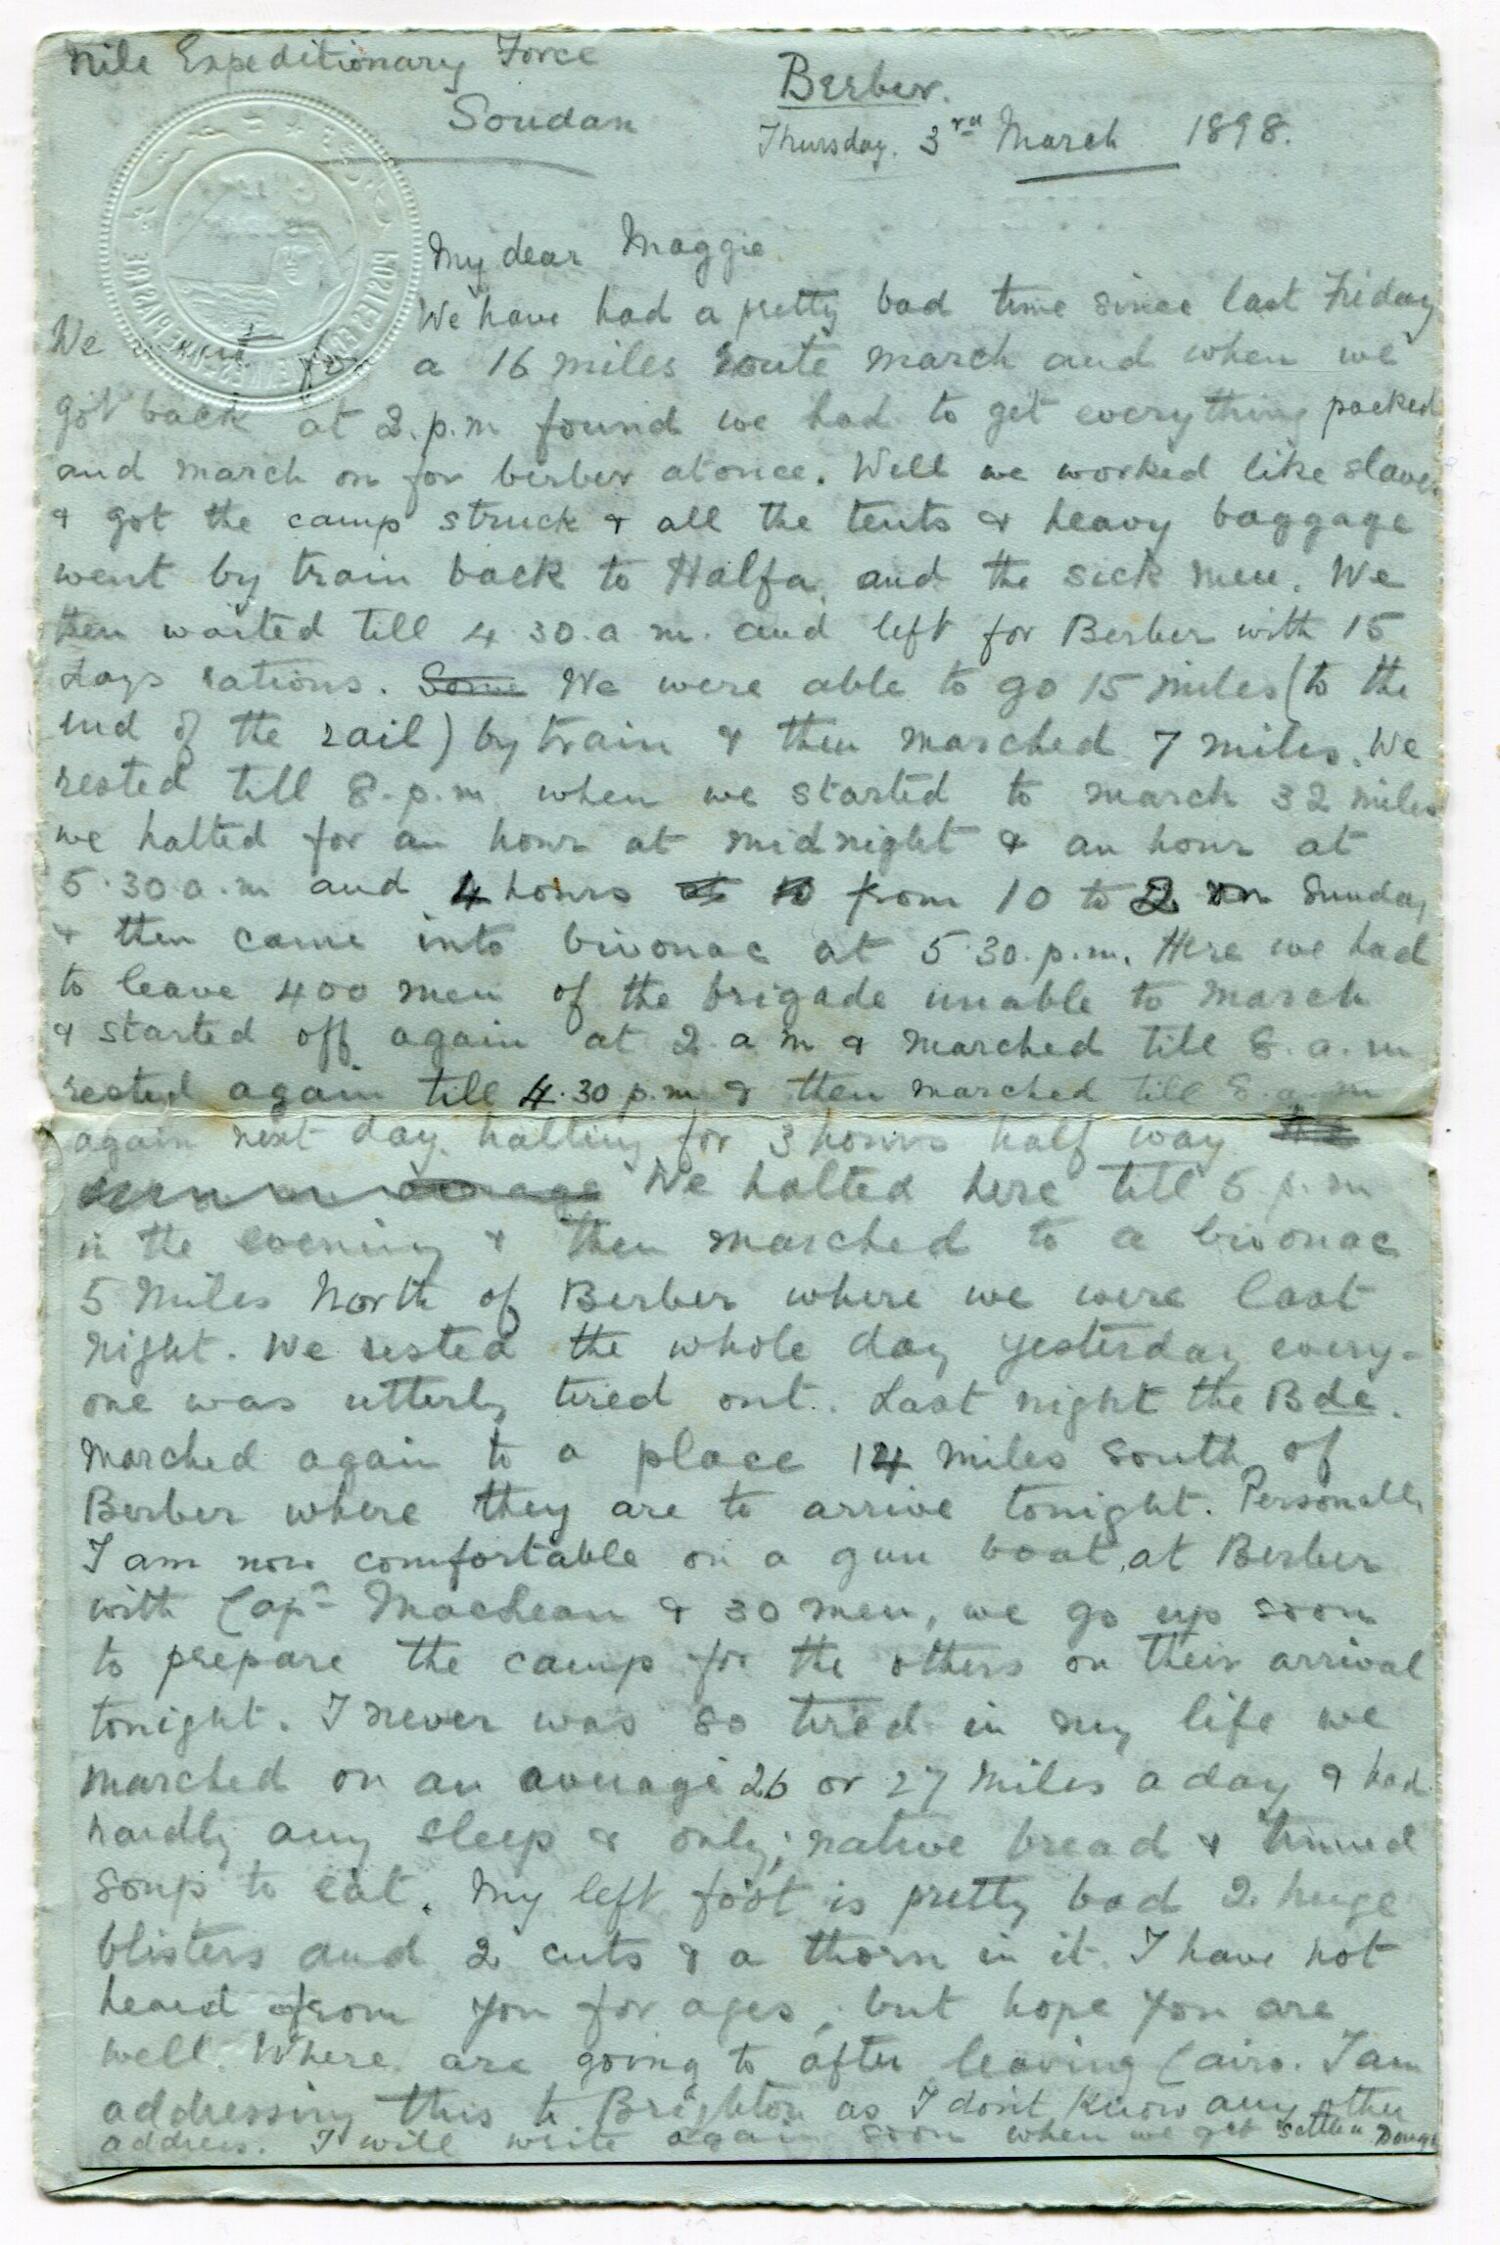 Nile Expeditionary Force
Soudan
Berber.
Thursday. 3rd March 1898.
POSTES EGYPTIENNES
My dear Maggie
We have had a pretty bad time since last Friday
We for a 16 miles route march and when we
got back at 2.p.m found we had to get everything packed
and march on for berber at once. Well we worked like slaves
& got the camp struck & all the tents & heavy baggage
went by train back to Halfa, and the sick men. We
then waited till 4.30.a.m. and left for Berber with 15
days rations. Some We were able to go 15 miles (to the
end of the rail) by train & then marched 7 miles. We
rested till 8.p.m when we started to march 32 miles
we halted for an hour at midnight & an hour at
5.30 a.m and 4 hours at 10 from 10 to 2 on Sunday
& then came into bivouac at 5.30.p.m. Here we had
to leave 400 men of the brigade unable to march
& started off again at 2.a m & marched till 8.a.m
rested again till 4.30 p.m & then marched till 8.a.m
again next day, halting for 3 hours half way
average We halted here till 5 p.m
in the evening & then marched to a bivouac
5 miles North of Berber where we were last
night. We rested the whole day yesterday every-
one was utterly tired out. Last night the Bde.
marched again to a place 14 miles south of
Berber where they are to arrive tonight. Personally
I am now comfortable on a gun boat, at Berber
with Capn MacLean & 30 men, we go up soon
to prepare the camp for the others on their arrival
tonight. I never was so tired in my life we
marched on an average 26 or 27 miles a day & had
hardly any sleep & only; native bread & tinned
soup to eat. My left foot is pretty bad 2 huge
blisters and 2 cuts & a thorn in it. I have not
heard from you for ages, but hope you are
well. Where are going to after leaving Cairo. I am
addressing this to Brighton as I don't know any other
address. I will write again soon when we get settled Doug